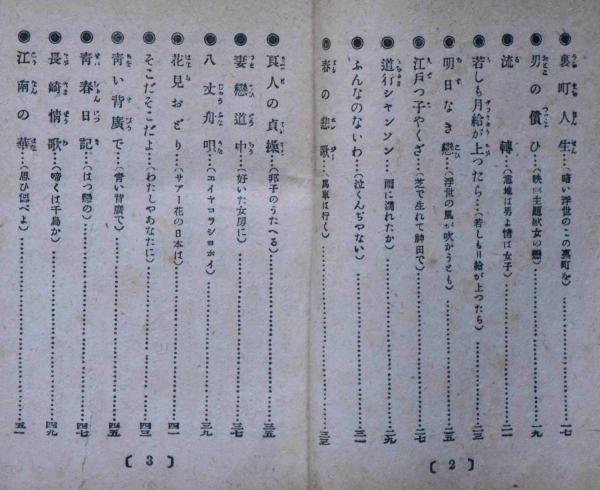 裏町人生…(暗い浮世のこの裏町を)…一七
男の償ひ…(映画主題歌女の戀)…一九
流轉…(意地は男よ情は女子)…二一
若しも月給が上つたら…(若しも月給が上つたら)…二三
明日なき戀…(浮世の風が吹かうとも)
江戸つ子やくざ…(芝で生れて神田で)…二七
道行シャンソン…(雨に濡れたか)…二九
ふんなのないわ…(泣くんぢやない)…三一
春の悲歌…(馬車は行く)…三三
〔2〕
良人の貞操…(邦子のうたへる)…三五
妻戀道中…(好いた女房に)…三七
八丈舟唄…(エイヤコラシヨホイ)…三九
花見おどり…(サアー花の日本は)…四一
そこだそこだよ…(わたしやあなたに)…四三
青い背廣で…(青い背廣で)…四五
青春日記…(はつ戀の)…四七
長崎情歌…(啼くは千鳥か)…四九
江南の華…(思ひ偲べよ)…五一
〔3〕